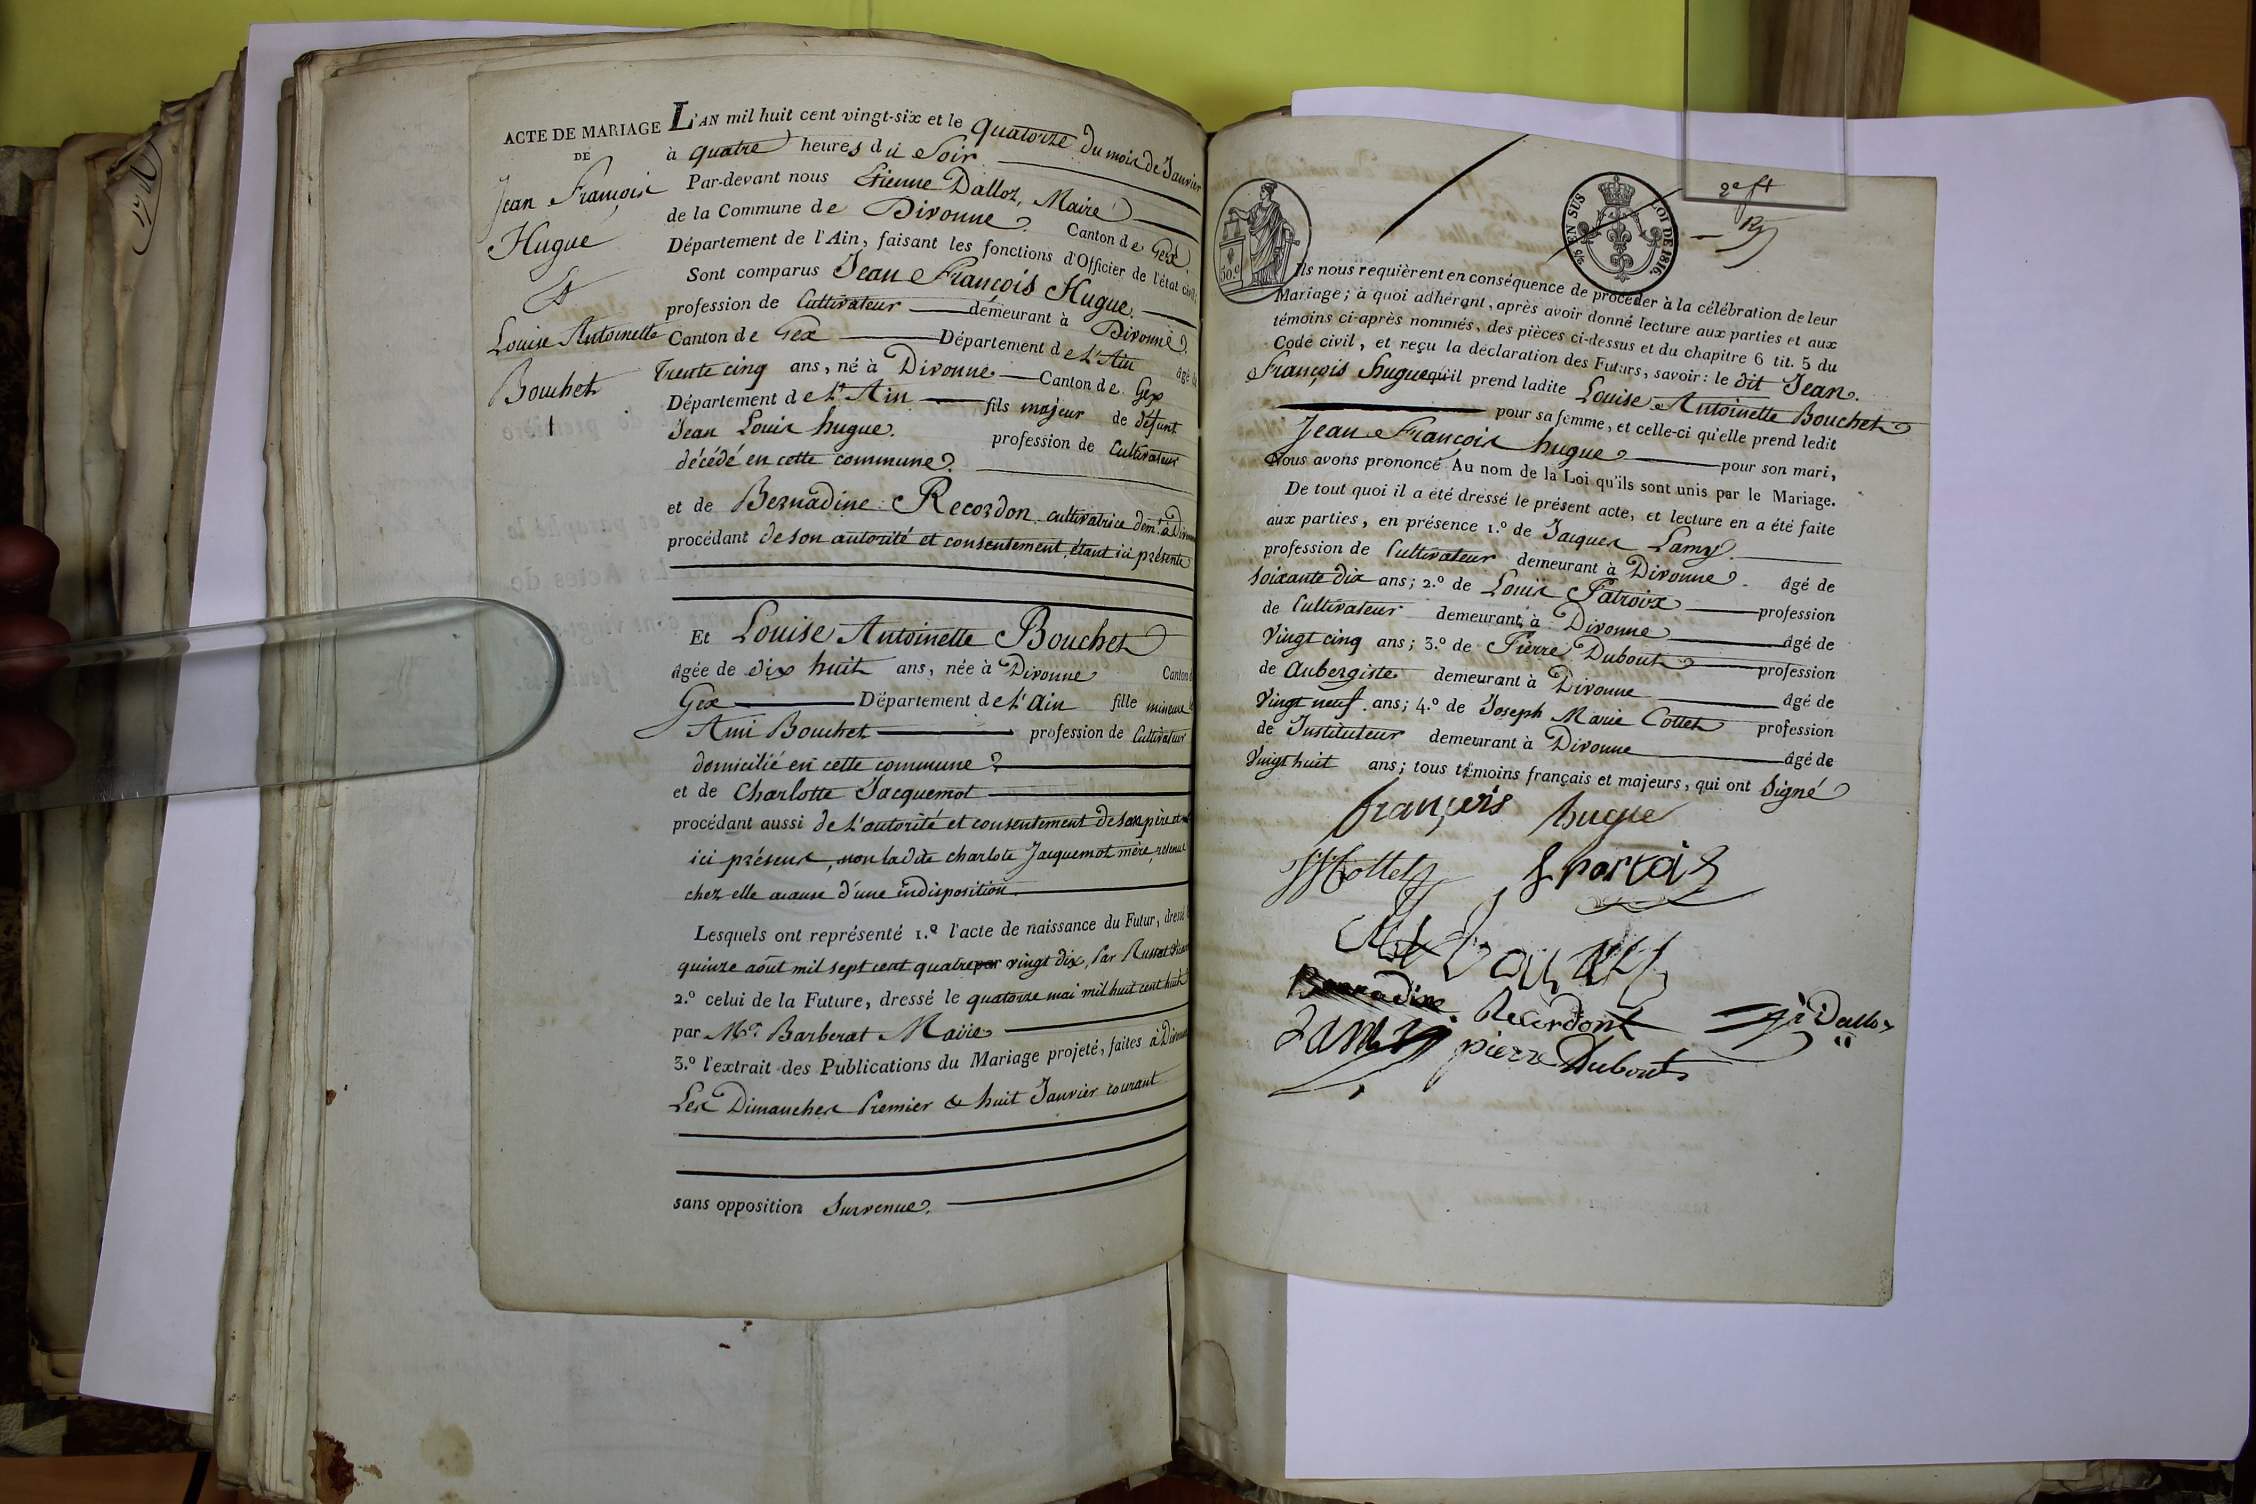 ACTE DE MARIAGE
DE
Jean François
Hugue
Et
Louise Antoinette
Bouchet
1
L'AN mil huit cent vingt-six et le quatorze du mois de Janvier
à quatre heures du Soir
Par-devant nous Etienne Dalloz, Maire
de la Commune de Divonne Canton de Gex
Département de l'Ain, faisant les fonctions d'Officier de l'état civil,
Sont comparus Jean François Hugue
profession de Cultivateur demeurant à Divonne
Canton de Gex Département de L'Ain âgé de
trente cinq ans, né à Divonne Canton de Gex
Département de L'Ain fils majeur de défunt
Jean Louis hugue. profession de Cultivateur
décédé en cette commune
et de Bernadine Recordon cultivatrice demt. à Divonne
procédant de son autorité et consentement, étant ici présente
Et Louise Antoinette Bouchet
âgée de dix huit ans, née à Divonne Canton
Gex Département de L'Ain fille mineure
Ami Bouchet profession de Cultivateur
domicilié en cette commune
et de Charlotte Jacquemot
procédant aussi de L'autorité et consentement de son père
ici présent, non ladite charlote Jacquemot mère, retenue
chez elle acause d'une indisposition.
Lesquels ont représenté 1.º l'acte de naissance du Futur, dressé
quinze août mil sept cent quatre vingt dix, Par
2.º celui de la Future, dressé le quatorze mai mil huit cent huit
par Mr. Barberat Maire
3.º l'extrait des Publications du Mariage projeté, faites à Divonne
Les Dimanches Premier & huit Janvier courant
sans opposition Survenue.
50.c
EN SUS
LOI DE 1816.
2e ft
Ils nous requièrent en conséquence de procéder à la célébration de leur
Mariage; à quoi adhérant, après avoir donné lecture aux parties et aux
témoins ci-après nommés, des pièces ci-dessus et du chapitre 6 tit. 5 du
Code civil, et reçu la déclaration des Futurs, savoir: le dit Jean
François hugue qu'il prend ladite Louise Antoinette Bouchet
pour sa femme, et celle-ci qu'elle prend ledit
Jean François hugue pour son mari,
Nous avons prononcé Au nom de la Loi qu'ils sont unis par le Mariage.
De tout quoi il a été dressé le présent acte, et lecture en a été faite
aux parties, en présence 1.º de Jacques Lamy
profession de Cultivateur demeurant à Divonne âgé de
soixante dix ans; 2.º de Louis Patroix profession
de Cultivateur demeurant à Divonne âgé de
Vingt cinq ans; 3.º de Pierre Dubout profession
de Aubergiste demeurant à Divonne âgé de
Vingt neuf ans; 4.º de Joseph Marie Cottet profession
de Instituteur demeurant à Divonne âgé de
Vingt huit ans; tous témoins français et majeurs, qui ont Signé
françois hugue
Cottet
Bernadine Recordont
Dalloz
Lamy pierre Dubout